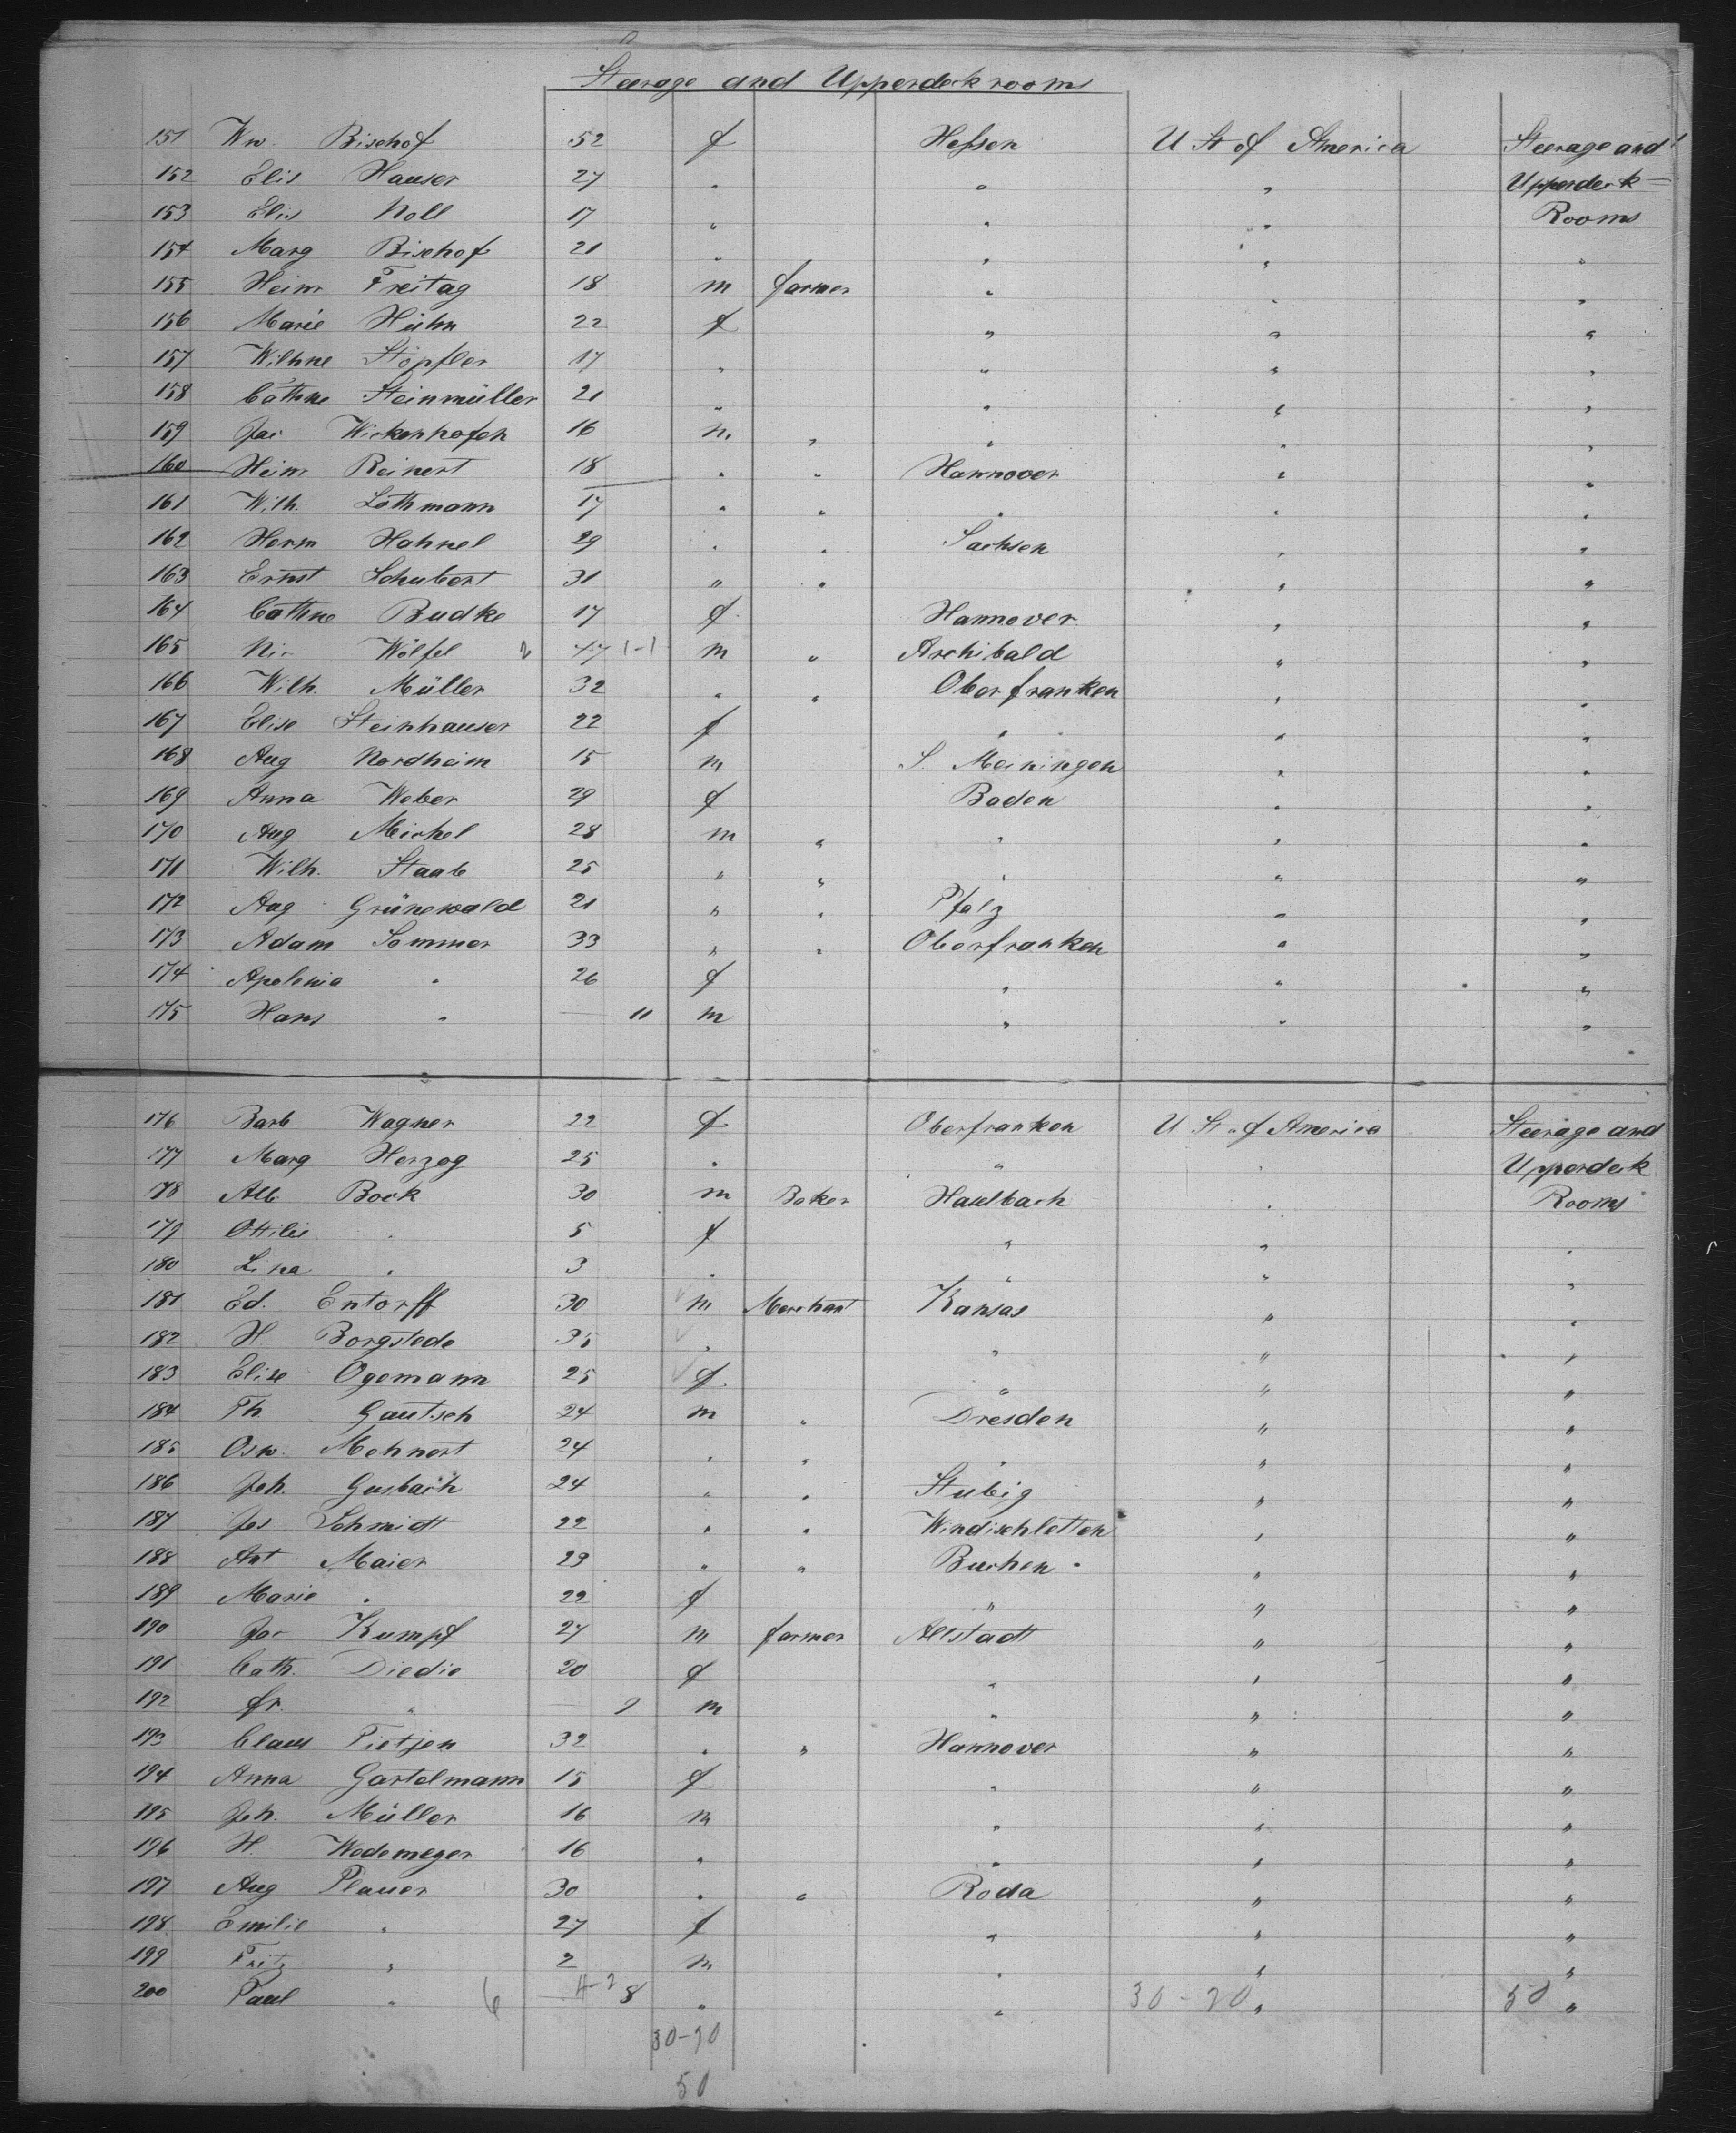 Steerage and Upperdeck rooms
151 Ww. Bischof 52 f Hessen U St of America Steerage and
152 Elis Hauser 27 " " " Upperdeck
153 Elis Noll 17 " " " Rooms
154 Marg Bischof 21 " " " "
155 Heinr Freitag 18 m farmer " " "
156 Marie Hühn 22 f " " "
157 Wilhne Stöpfler 17 " " " "
158 Cathne Steinmüller 21 " " " "
159 Jac Wickenhofen 16 m " " " "
160 Heinr Reinert 18 " " Hannover " "
161 Wilh. Lothmann 17 " " " " "
162 Herm Hahnel 29 " " Sachsen " "
163 Ernst Schubert 31 " " " "
164 Cathne Budke 17 f Hannover " "
165 Nic Wölfel 2 47 1-1 m " Archibald " "
166 Wilh. Müller 32 " " Oberfranken " "
167 Elise Steinhauser 22 f " " "
168 Aug Nordheim 15 m S. Meiningen " "
169 Anna Weber 29 f Baden " "
170 Aug Michel 28 m " " " "
171 Wilh. Staab 25 " " " " "
172 Aug Grünewald 21 " " Pfalz " "
173 Adam Sommer 33 " " Oberfranken " "
174 Apolonia " 26 f " " "
175 Hans " — 11 m " " "
176 Barb Wagner 22 f Oberfranken U St of America Steerage and
177 Marg Herzog 25 " " " Upperdeck
178 Alb Bock 30 m Baker Haulbach " Rooms
179 Ottilie " 5 f " " "
180 Lina " 3 " " " "
181 Ed. Entorff 30 m Merchant Kansas " "
182 H Borgstede 35 " " " "
183 Elise Ogemann 25 f " " "
184 Th Gautsch 24 m " Dresden " "
185 Osw. Mehnert 24 " " " " "
186 Joh. Gusbach 24 " " Stubig " "
187 Jos Schmidt 22 " " Windischletten " "
188 Ant Maier 29 " " Buchen " "
189 Marie " 22 f " " "
190 Jos Kumpf 27 m farmer Altstadt " "
191 Cath. Diedie 20 f " " "
192 fr. " — 9 m " " "
193 Claus Tietjen 32 " " Hannover " "
194 Anna Gartelmann 15 f " " "
195 Joh. Müller 16 m " " "
196 H. Wedemeyer 16 " " " "
197 Aug Plauer 30 " " Roda " "
198 Emilie " 27 f " " "
199 Fritz " 2 m " " "
200 Paul " 6 4-2 8 " " 30-20 " 50 "
30-20
50